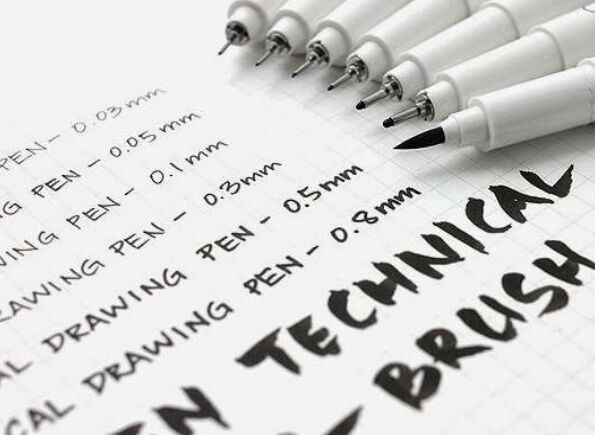 PEN - 0.03mm
PEN - 0.05mm
PEN - 0.1mm
DRAWING PEN - 0.3mm
DRAWING PEN - 0.5mm
DRAWING PEN - 0.8mm
TECHNICAL
BRUSH